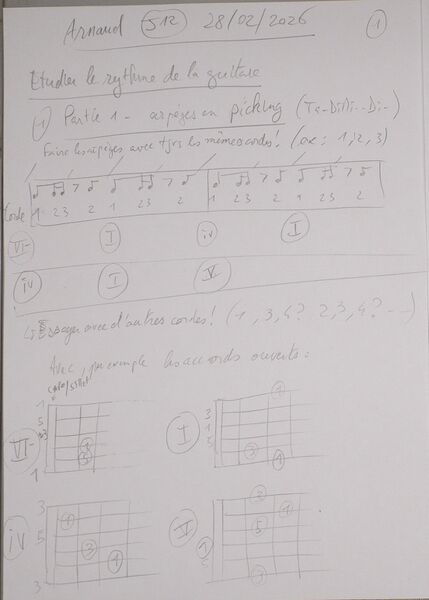 Arnaud S12 28/02/2026 1
Etudier le rythme de la guitare
1 Partie 1 - arpèges en picking (Ta-DiDi--Di-)
Faire les arpèges avec tjrs les mêmes cordes! (ex: 1,2,3)
Corde 1 23 2 1 23 2 1 23 2 1 23 2
VI- I iv I
iv I V
↳ Essayer avec d'autres cordes! (1,3,4? 2,3,4?--)
Avec, par exemple les accords ouverts:
VI-
I
iv